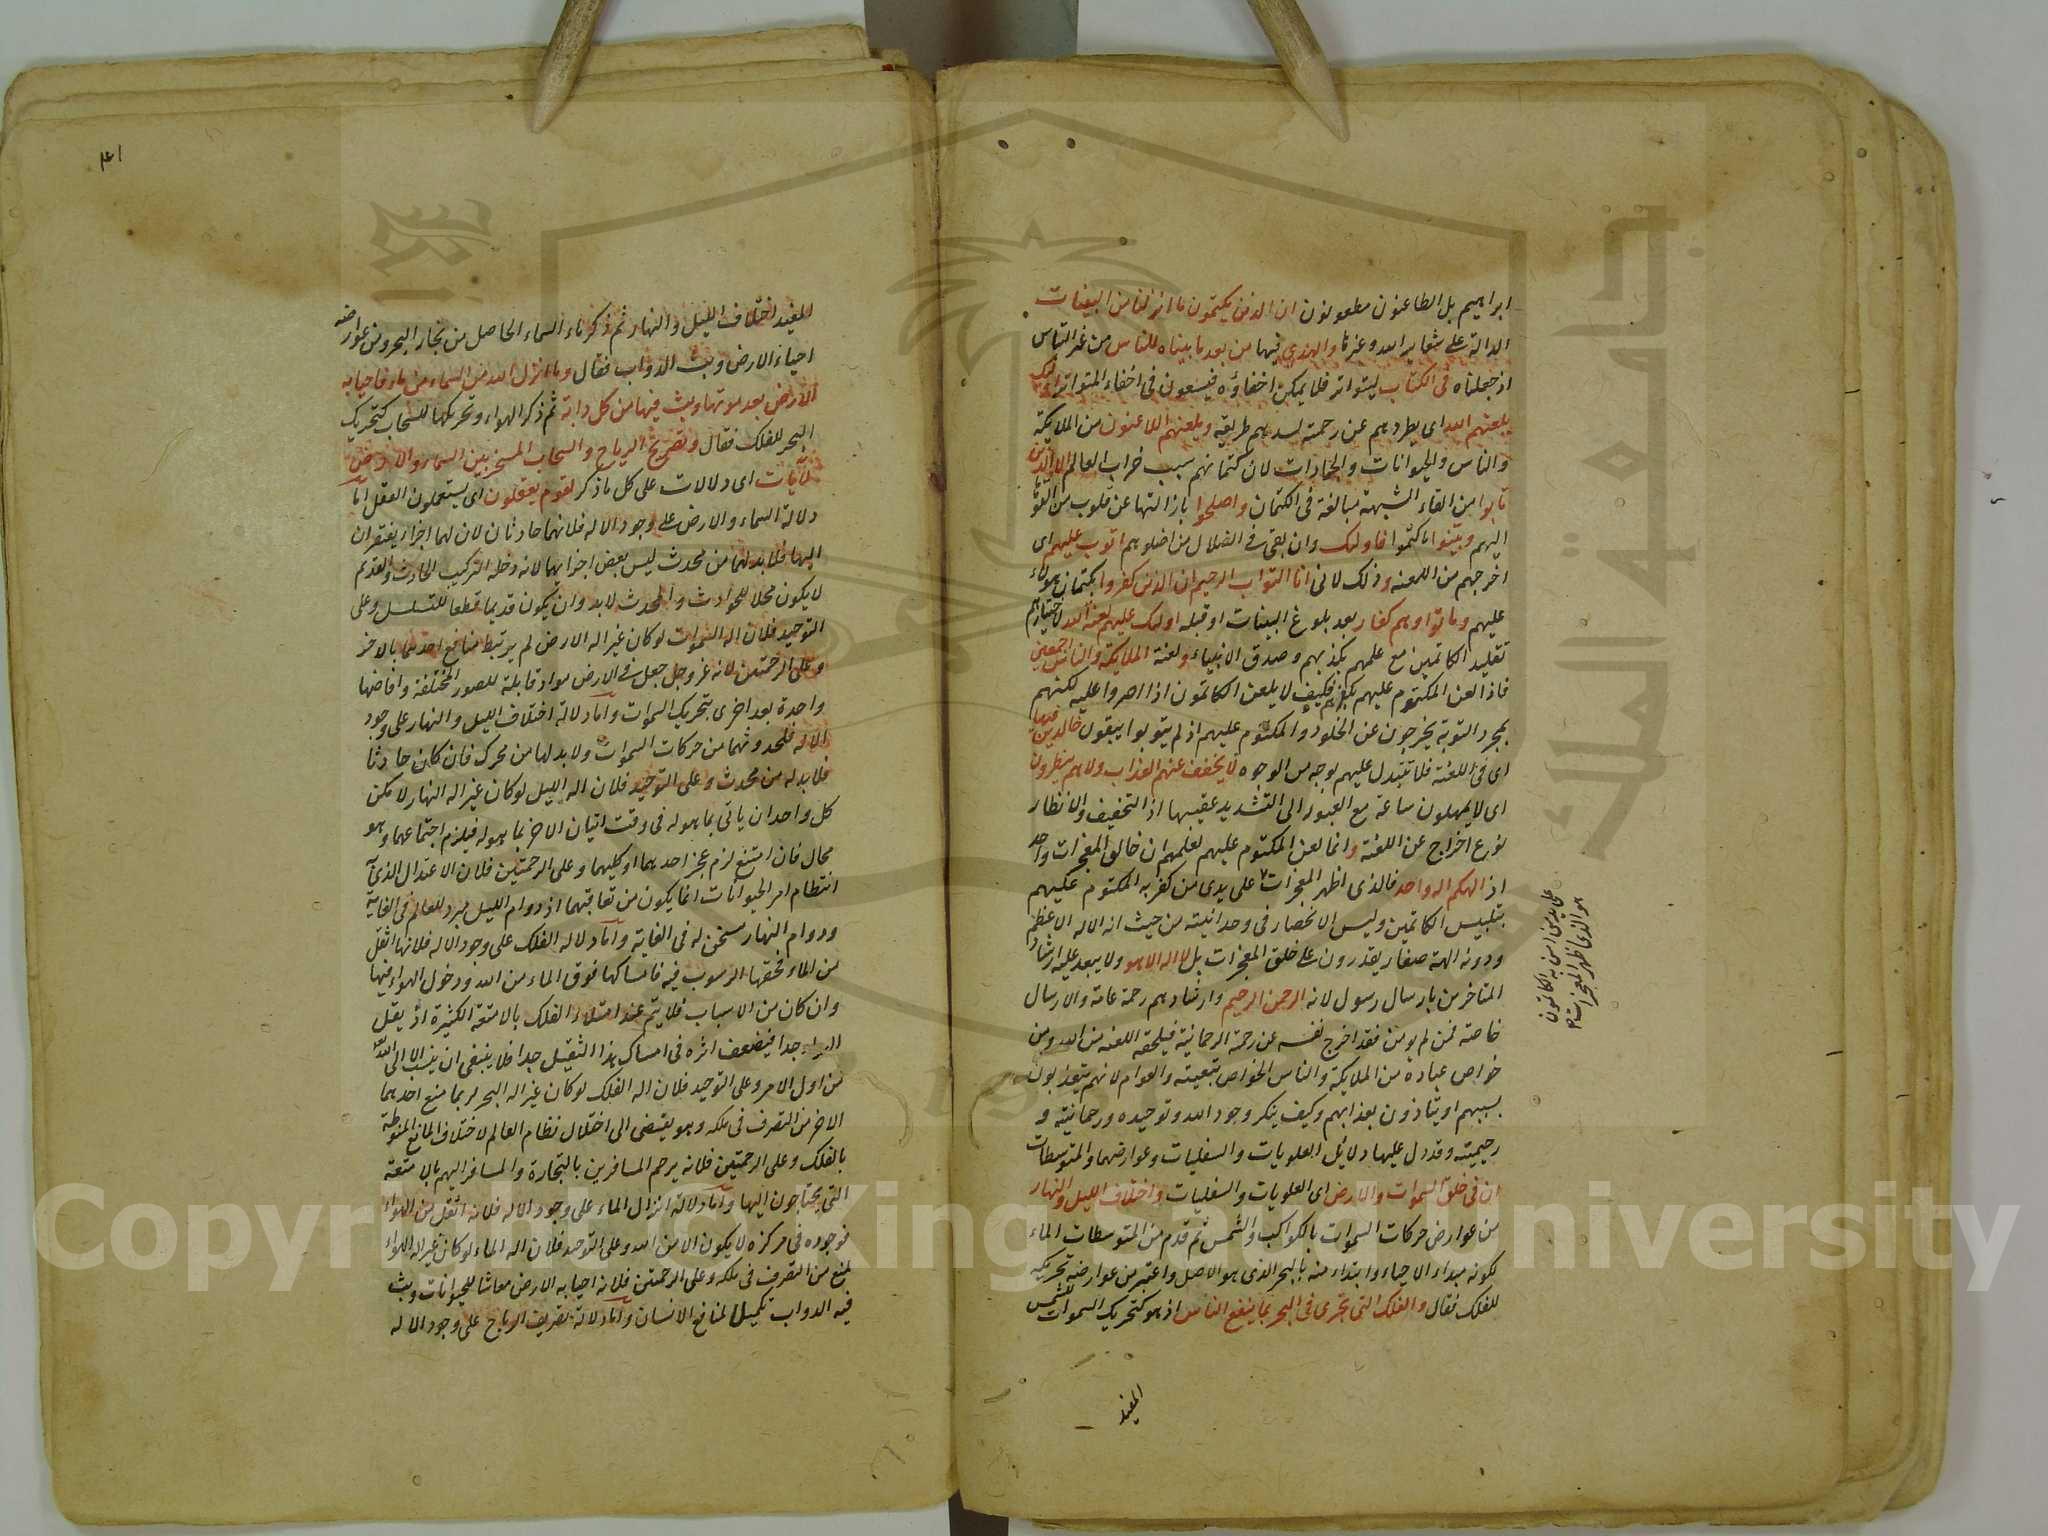 ابراهيم بل الطاعنون مطعونون ان الذين يكتمون ما انزلنا من البينات
الدالة على شعاير الله وغيرها والهدى فيها من بعد ما بيناه للناس من غير التباس
اذ جعلناه فى الكتاب ليتواتر فلا يمكن اخفاؤه فيسعون فى اخفاء المتواتر اولئك
يلعنهم الله اى يطردهم عن رحمته لسدهم طريقه ويلعنهم اللاعنون من الملايكة
والناس والحيوانات والجمادات لان كتمانهم سبب خراب العالم الا الذين
تابوا من القاء الشبهة مبالغة فى الكتمان واصلحوا بازالتها عن قلوب من القوا
اليهم وبينوا ما كتموا فاولئك وان بقى فى الضلال من اضلوهم اتوب عليهم اى
اخرجهم من اللعنه وذلك لانى انا التواب الرحيم ان الذين كفروا بكتمان هولاء
عليهم وماتوا وهم كفار بعد بلوغ البينات او قبله اولئك عليهم لعنة الله لاختيارهم
تقليد الكاتمين مع علمهم بكذبهم وصدق الانبياء ولعنة الملايكة والناس اجمعين
فاذا لعن المكتوم عليهم بكفرهم فكيف لا يلعن الكاتمون اذا اصروا عليه لكنهم
بمجرد التوبة يخرجون عن الخلود والمكتوم عليهم اذ لم يتوبوا يبقون خالدين فيها
اى فى اللعنة فلا تتبدل عليهم بوجه من الوجوه لا يخفف عنهم العذاب ولا هم ينظرون
اى لا يمهلون ساعة مع العبور الى التشديد عقيبها اذ التخفيف والانظار
نوع اخراج عن اللعنة وانما لعن المكتوم عليهم لعلمهم ان خالق المعجزات واحد
اذ الهكم اله واحد فالذى اظهر المعجزات على يدى من كفر به المكتوم عليهم
بتلبيس الكاتمين وليس الانحصار فى وحدانيته من حيث انه الاله الاعظم
ودونه الهة صغار يقدرون على خلق المعجزات بل لا اله الا هو ولا يبعد عليه ارشاد
المتاخرين بارسال رسول لانه الرحمن الرحيم وارشادهم رحمة عامة والارسال
خاصة فمن لم يومن فقد اخرج نفسه عن رحمة الرحمانية فيلحقه اللعنه من الله ومن
خواص عباده من الملايكة والناس الخواص بتبعيته والعوام لانهم يتعذبون
بسببهم او يتاذون بعذابهم وكيف ينكر وجود الله وتوحيده ورحمانيته و
رحيميته وقد دل عليها دلايل العلويات والسفليات وعوارضهما والمتوسطات
ان فى خلق السموات والارض اى العلويات والسفليات واختلاف الليل والنهار
من عوارض حركات السموات بالكواكب والشمس ثم قدم من المتوسطات الماء
لكونه مبداء الاحياء وابتداء منه بالبحر الذى هو الاصل واعتبر من عوارضه تحريكه
للفلك فقال والفلك التى تجرى فى البحر بما ينفع الناس اذ هو كتحريك السموات للشمس
المفيد
هو الذى اظهر المعجزات
على يدى من امن به الكاتمون
المفيد اختلاف الليل والنهار ثم ذكر ماء السماء الحاصل من بخار البحر ومن عوارضه
احياء الارض وبث الدواب فقال وما انزل الله من السماء من ماء فاحيا به
الارض بعد موتها وبث فيها من كل دابة ثم ذكر الهواء وتحريكها للسحاب كتحريك
البحر للفلك فقال وتصريف الرياح والسحاب المسخر بين السماء والارض
لايات اى دلالات على كل ما ذكر لقوم يعقلون اى يستعملون العقل اما
دلالة السماء والارض على وجود الاله فلانهما حادثان لان لهما اجزاء يفتقران
اليها فلا بد لهما من محدث ليس بعض اجزايهما لانه دخله التركيب الحادث والقديم
لا يكون محلا للحوادث والمحدث لا بد وان يكون قديما قطعا للتسلسل وعلى
التوحيد فلان اله السموات لو كان غير اله الارض لم يرتبط منافع احدهما بالاخر
وعلى الرحمتين لانه عز وجل جعل فى الارض مواد قابلة للصور المختلفة وافاضها
واحدة بعد اخرى بتحريك السموات واما دلالة اختلاف الليل والنهار على وجود
الاله فلحدوثهما من حركات السموات ولا بد لها من محرك فان كان حادثا
فلا بد له من محدث وعلى التوحيد فلان اله الليل لو كان غير اله النهار لامكن
كل واحد ان ياتى بما هو له فى وقت اتيان الاخر بما هو له فيلزم اجتماعهما وهو
محال فان امتنع لزم عجز احدهما او كليهما وعلى الرحمتين فلان الاعتدال الذى به
انتظام امر الحيوانات انما يكون من تعاقبهما اذ دوام الليل مبرد للعالم فى الغاية
ودوام النهار مسخن له فى الغاية واما دلالة الفلك على وجود الاله فلانها اثقل
من الماء فحقها الرسوب فيه فامساكها فوق الماء من الله ودخول الهواء فيها
وان كان من الاسباب فلا يتم عند امتلاء الفلك بالامتعة الكثيرة اذ يقل
الهواء جدا فيضعف اثره فى امساك هذا الثقيل جدا فلا ينبغى ان ينسب الا الى الله
من اول الامر وعلى التوحيد فلان اله الفلك لو كان غير اله البحر لربما منع احدهما
الاخر من التصرف فى ملكه وهو يقتضى الى اختلال نظام العالم لاختلاف المنافع المنوطة
بالفلك وعلى الرحمتين فلانه يرحم المسافرين بالتجارة والمسافر اليهم بالامتعة
التى يحتاجون اليها واما دلالة انزال الماء على وجود الاله فلانه اثقل من الهواء
فوجوده فى مركزه لا يكون الا من الله وعلى التوحيد فلان اله الماء لو كان غير اله الهواء
لمنع من التصرف فى ملكه وعلى الرحمتين فلانه احيا به الارض معاشا للحيوانات وبث
فيه الدواب تكميلا لمنافع الانسان واما دلالة تصريف الرياح على وجود الاله
Copyright © King Saud University
جامعة الملك سعود
1957